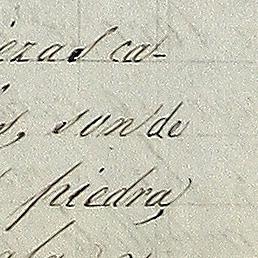 ezas ca-
s, son de
piedra,